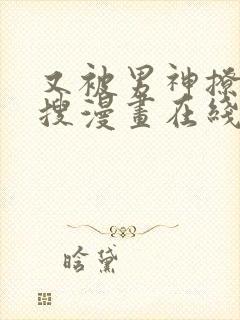 又被男神撩
搜漫畫在綫
晗黛